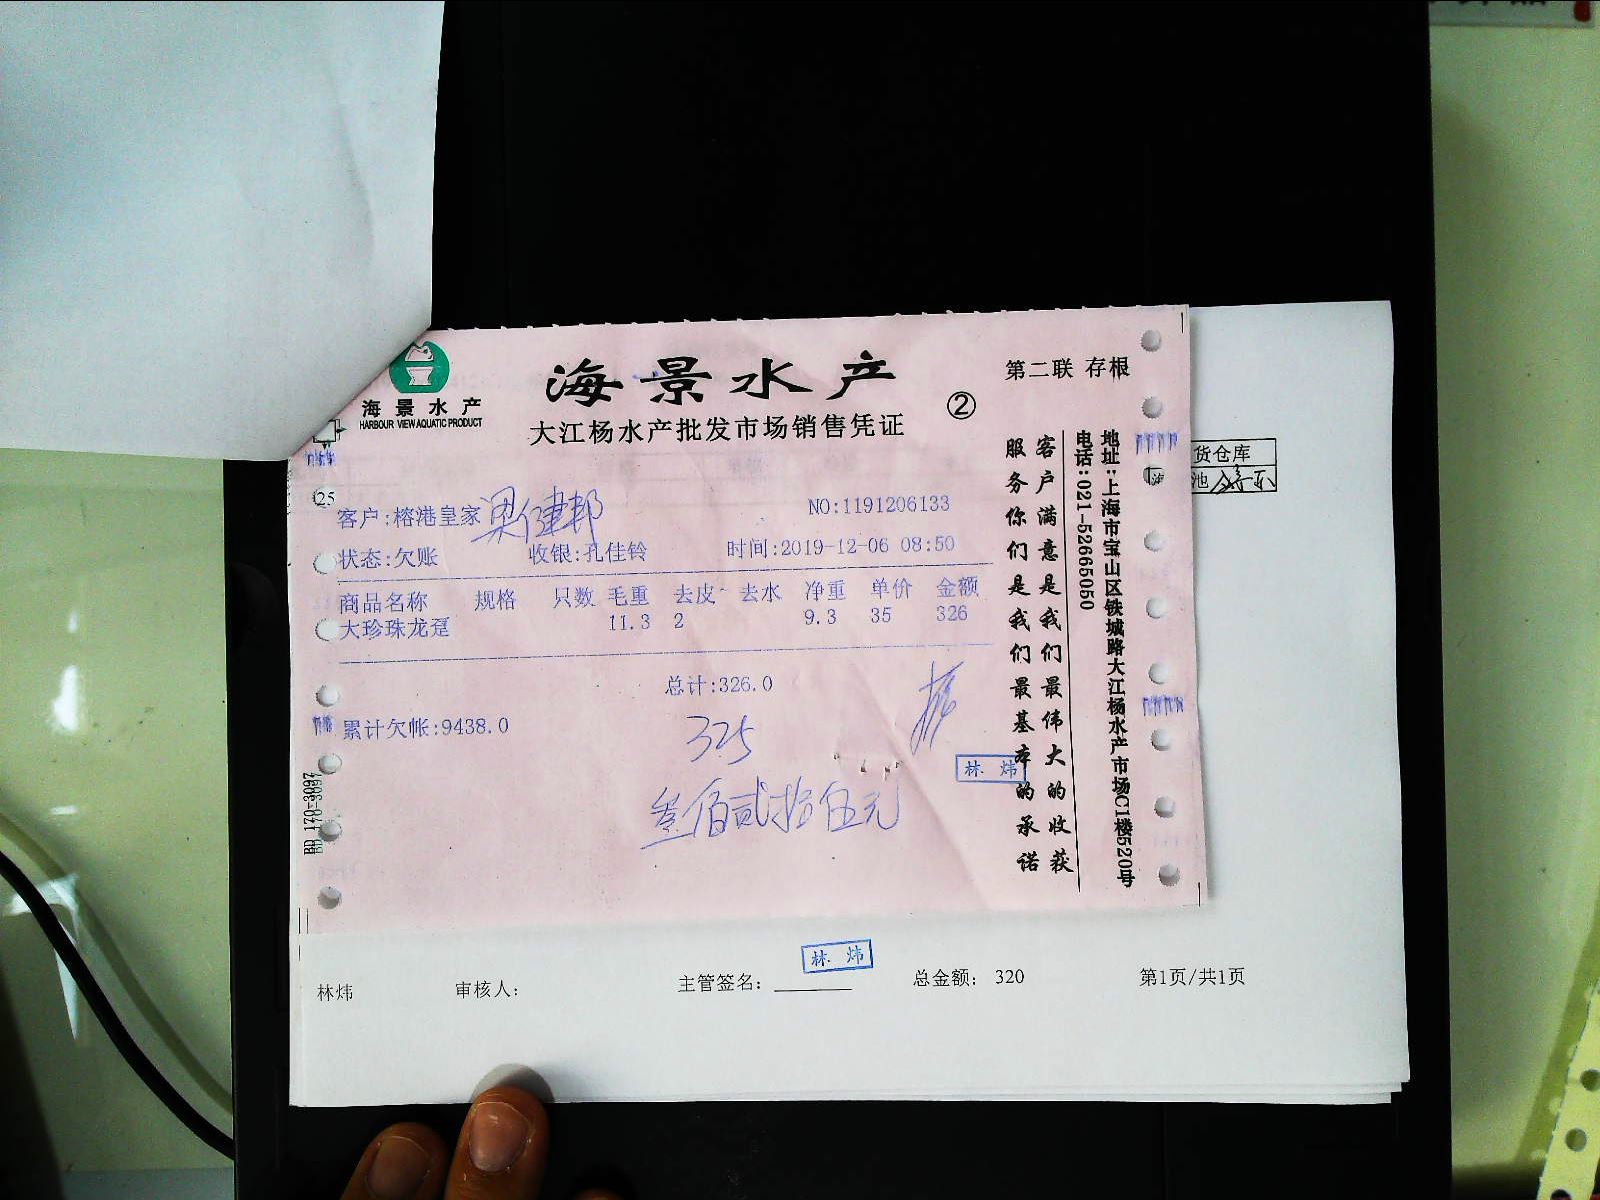 海景水产
HARBOUR VIEW AQUATIC PRODUCT
海景水产
大江杨水产批发市场销售凭证
②
第二联 存根
客户:榕港皇家 梁健邦
NO:1191206133
状态:欠账 收银:孔佳铃 时间:2019-12-06 08:50
商品名称 规格 只数 毛重 去皮 去水 净重 单价 金额
大珍珠龙趸 11.3 2 9.3 35 326
总计:326.0
累计欠帐:9438.0
325
叁佰贰拾伍元
林 炜
客户满意是我们最伟大的收获
服务你们是我们最基本的承诺
地址:上海市宝山区铁城路大江杨水产市场C1楼520号
电话:021-52665050
BD 170-3097
25
货仓库
池
林 炜
林炜 审核人: 主管签名: 总金额: 320 第1页/共1页